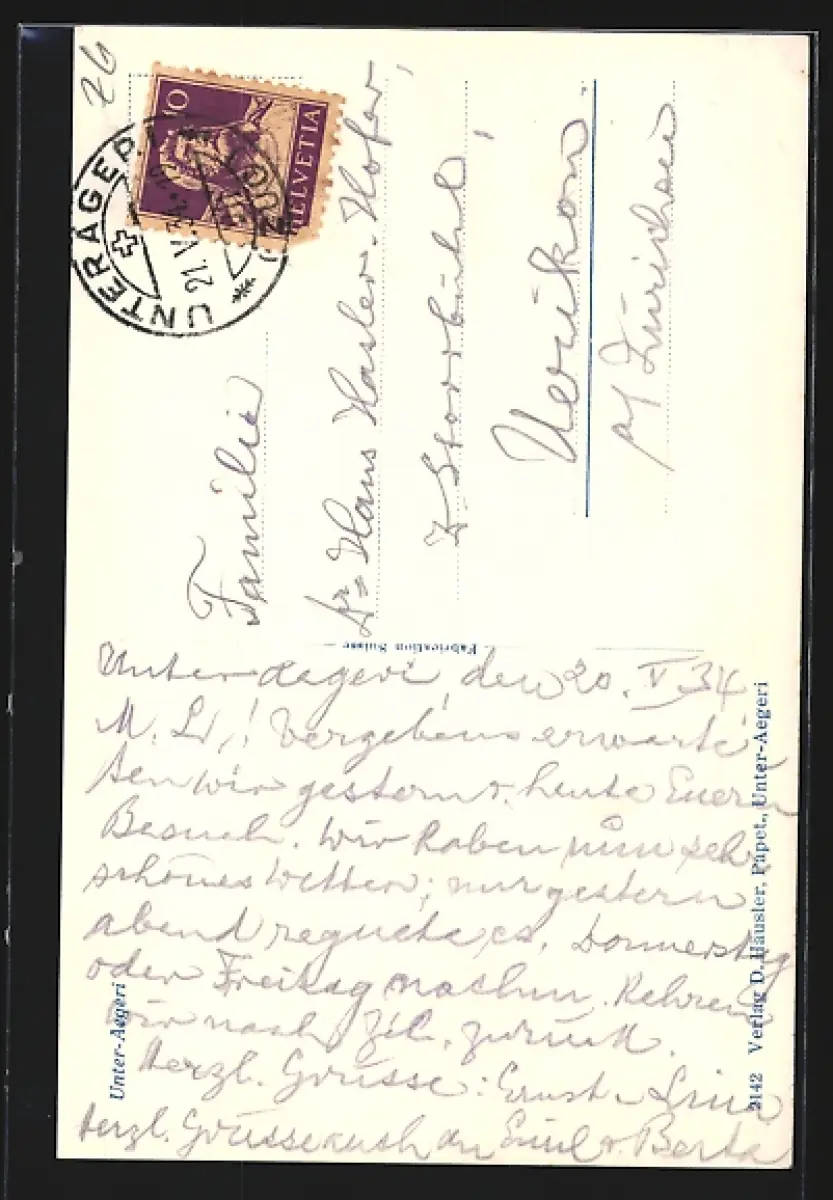 26
10
HELVETIA
UNTERÄGERI
21.V.34
(ZUG)
Familie
Hans Hasler-Hofer,
Uerikon
a/ Zürichsee
Fabrication Suisse
Unteraegeri, den 20. V. 34
M. L.! Vergebens erwarte-
ten wir gestern u. heute Euern
Besuch. Wir haben nun sehr
schönes Wetter; nur gestern
abend regnete es. Donnerstag
oder Freitag nachm. kehren
wir nach Zch. zurück.
Herzl. Grüsse: Ernst u. Lina
Herzl. Grüsse auch an Emil u. Berta
Unter-Aegeri
2142 Verlag D. Häusler, Papet., Unter-Aegeri